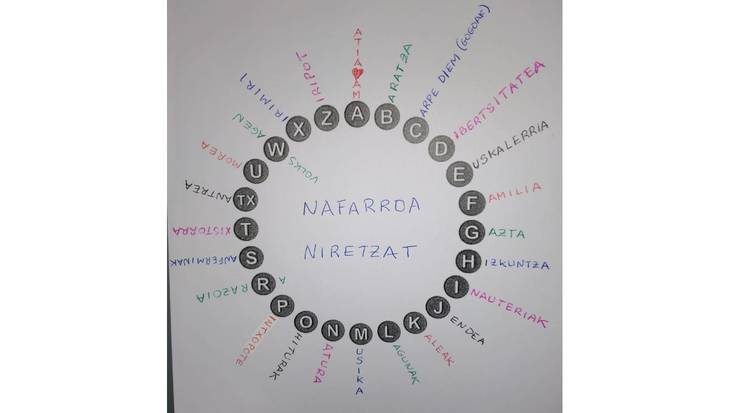 NAFARROA
NIRETZAT
A MA ❤ AITA
B ARATZA
C ARPE DIEM (GOGOAK)
D IBERTSITATEA
E USKALERRIA
F AMILIA
G AZTA
H IZKUNTZA
I NAUTERIAK
J ENDEA
K ALEAK
L AGUNAK
M USIKA
N ATURA
O HITURAK
P INTXOPOTE
A R RAZOIA
S ANFERMINAK
T XISTORRA
TX ANTREA
U MOREA
VOLKS W AGEN
X IRIMIRI
Z IRIPOT